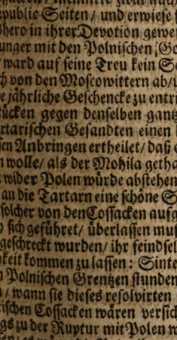 publie Seiten/ und erwiese s
hero in ihrer Devotion gewe
unger mit den Polnischen Go
ward auf seine Treu kein S
ch von den Moscowittern ab/
e jährliche Geschencke zu entri
rücken gegen denselben gantz
rtarischen Gesandten einen
en Anbringen ertheilet/ daß e
n wolle/ als der Mohila getha
wider Polen würde abstehen
an die Tartarn eine schöne S
solcher von den Cossacken aufg
sich geführet/ überlassen mus
geschreckt wurden/ ihr feindsel
keit kommen zu lassen: Sinte
Polnischen Grentzen stunden
/ wann sie dieses resolvirten
ischen Cossacken wären versich
gs zu der Ruptur mit Polen w